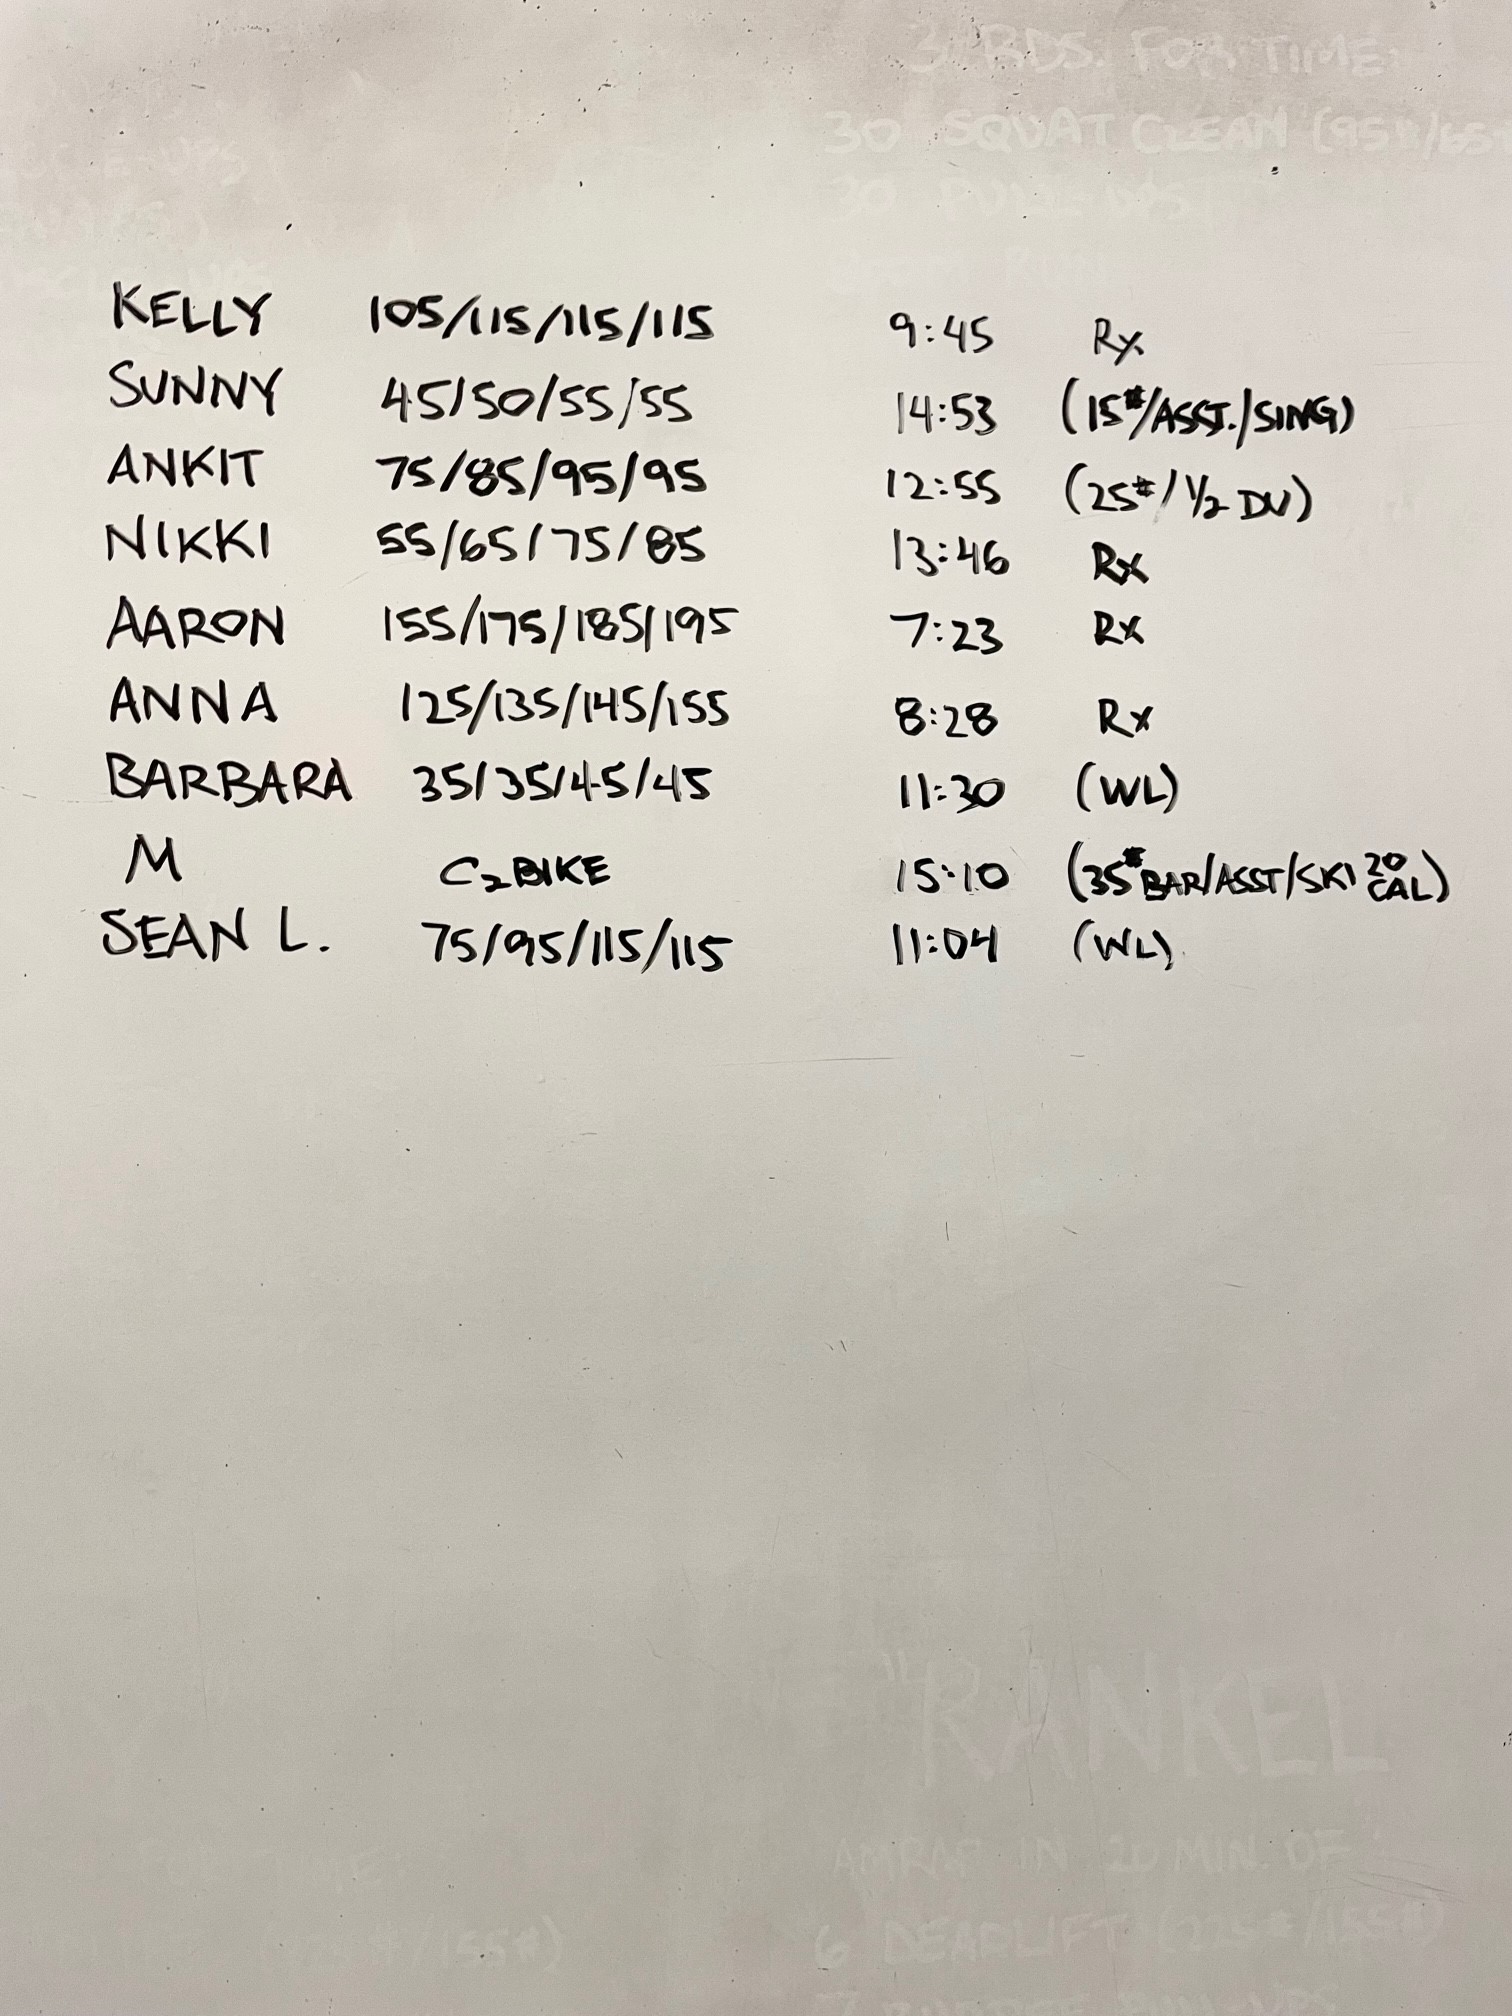 3 RDS. FOR TIME
30 SQUAT CLEAN (95#/65
30 PULL-UPS
KELLY 105/115/115/115 9:45 Rx
SUNNY 45/50/55/55 14:53 (15#/ASST./SING)
ANKIT 75/85/95/95 12:55 (25#/½ DU)
NIKKI 55/65/75/85 13:46 Rx
AARON 155/175/185/195 7:23 Rx
ANNA 125/135/145/155 8:28 Rx
BARBARA 35/35/45/45 11:30 (WL)
M C2 BIKE 15:10 (35# BAR/ASST/SKI 20 CAL)
SEAN L. 75/95/115/115 11:04 (WL)
"RANKEL"
AMRAP IN 20 MIN. OF:
6 DEADLIFT (225#/155#)